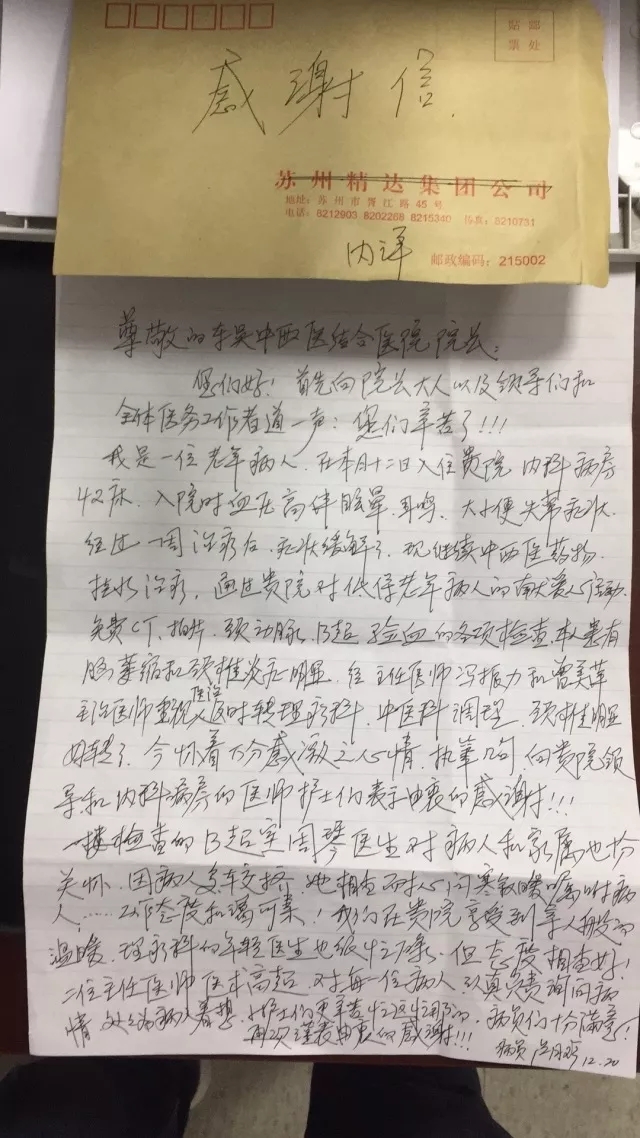 贴邮
票处
感谢信
苏州精达集团公司
地址：苏州市胥江路45号
电话：8212903 8202268 8215340 传真：5210731
内详 邮政编码：215002
尊敬的东吴中西医结合医院院长：
您们好！首先向院长大人以及领导们和
全体医务工作者道一声：您们辛苦了!!!
我是一位老年病人，在本月十二日入住贵院内科病房
42床．入院时血压高伴眩晕、耳鸣、大小便失常症状
经过一周治疗后，症状缓解了．现继续中西医药物．
挂水治疗，通过贵院对低保老年病人的献爱心活动．
免费CT、拍片、颈动脉、B超、验血的各项检查，本人患有
脑萎缩和颈椎炎症明显，经主任医师冯振力和曾美萍
主治医师重视医治及时转理疗科，中医科调理，颈椎明显
好转了．今怀着万分感激之心情，执笔几句，向贵院领
导和内科病房的医师护士们表示由衷的感谢!!!
一楼检查的B超室周琴医生对病人和家属也十分
关怀．因病人多，车交挤，她相当耐心问寒馁暖嘱咐病
人……工作态度和蔼可亲！我们在贵院享受到亲人般的
温暖．理疗科的年轻医生也很忙碌，但态度相当好！
二位主任医师医术高超．对每一位病人认真负责询问病
情 处处为病人着想．护士们更辛苦忙这忙那的．病员们十分满意！
再次谨表由衷的感谢!!!
病员 12.20